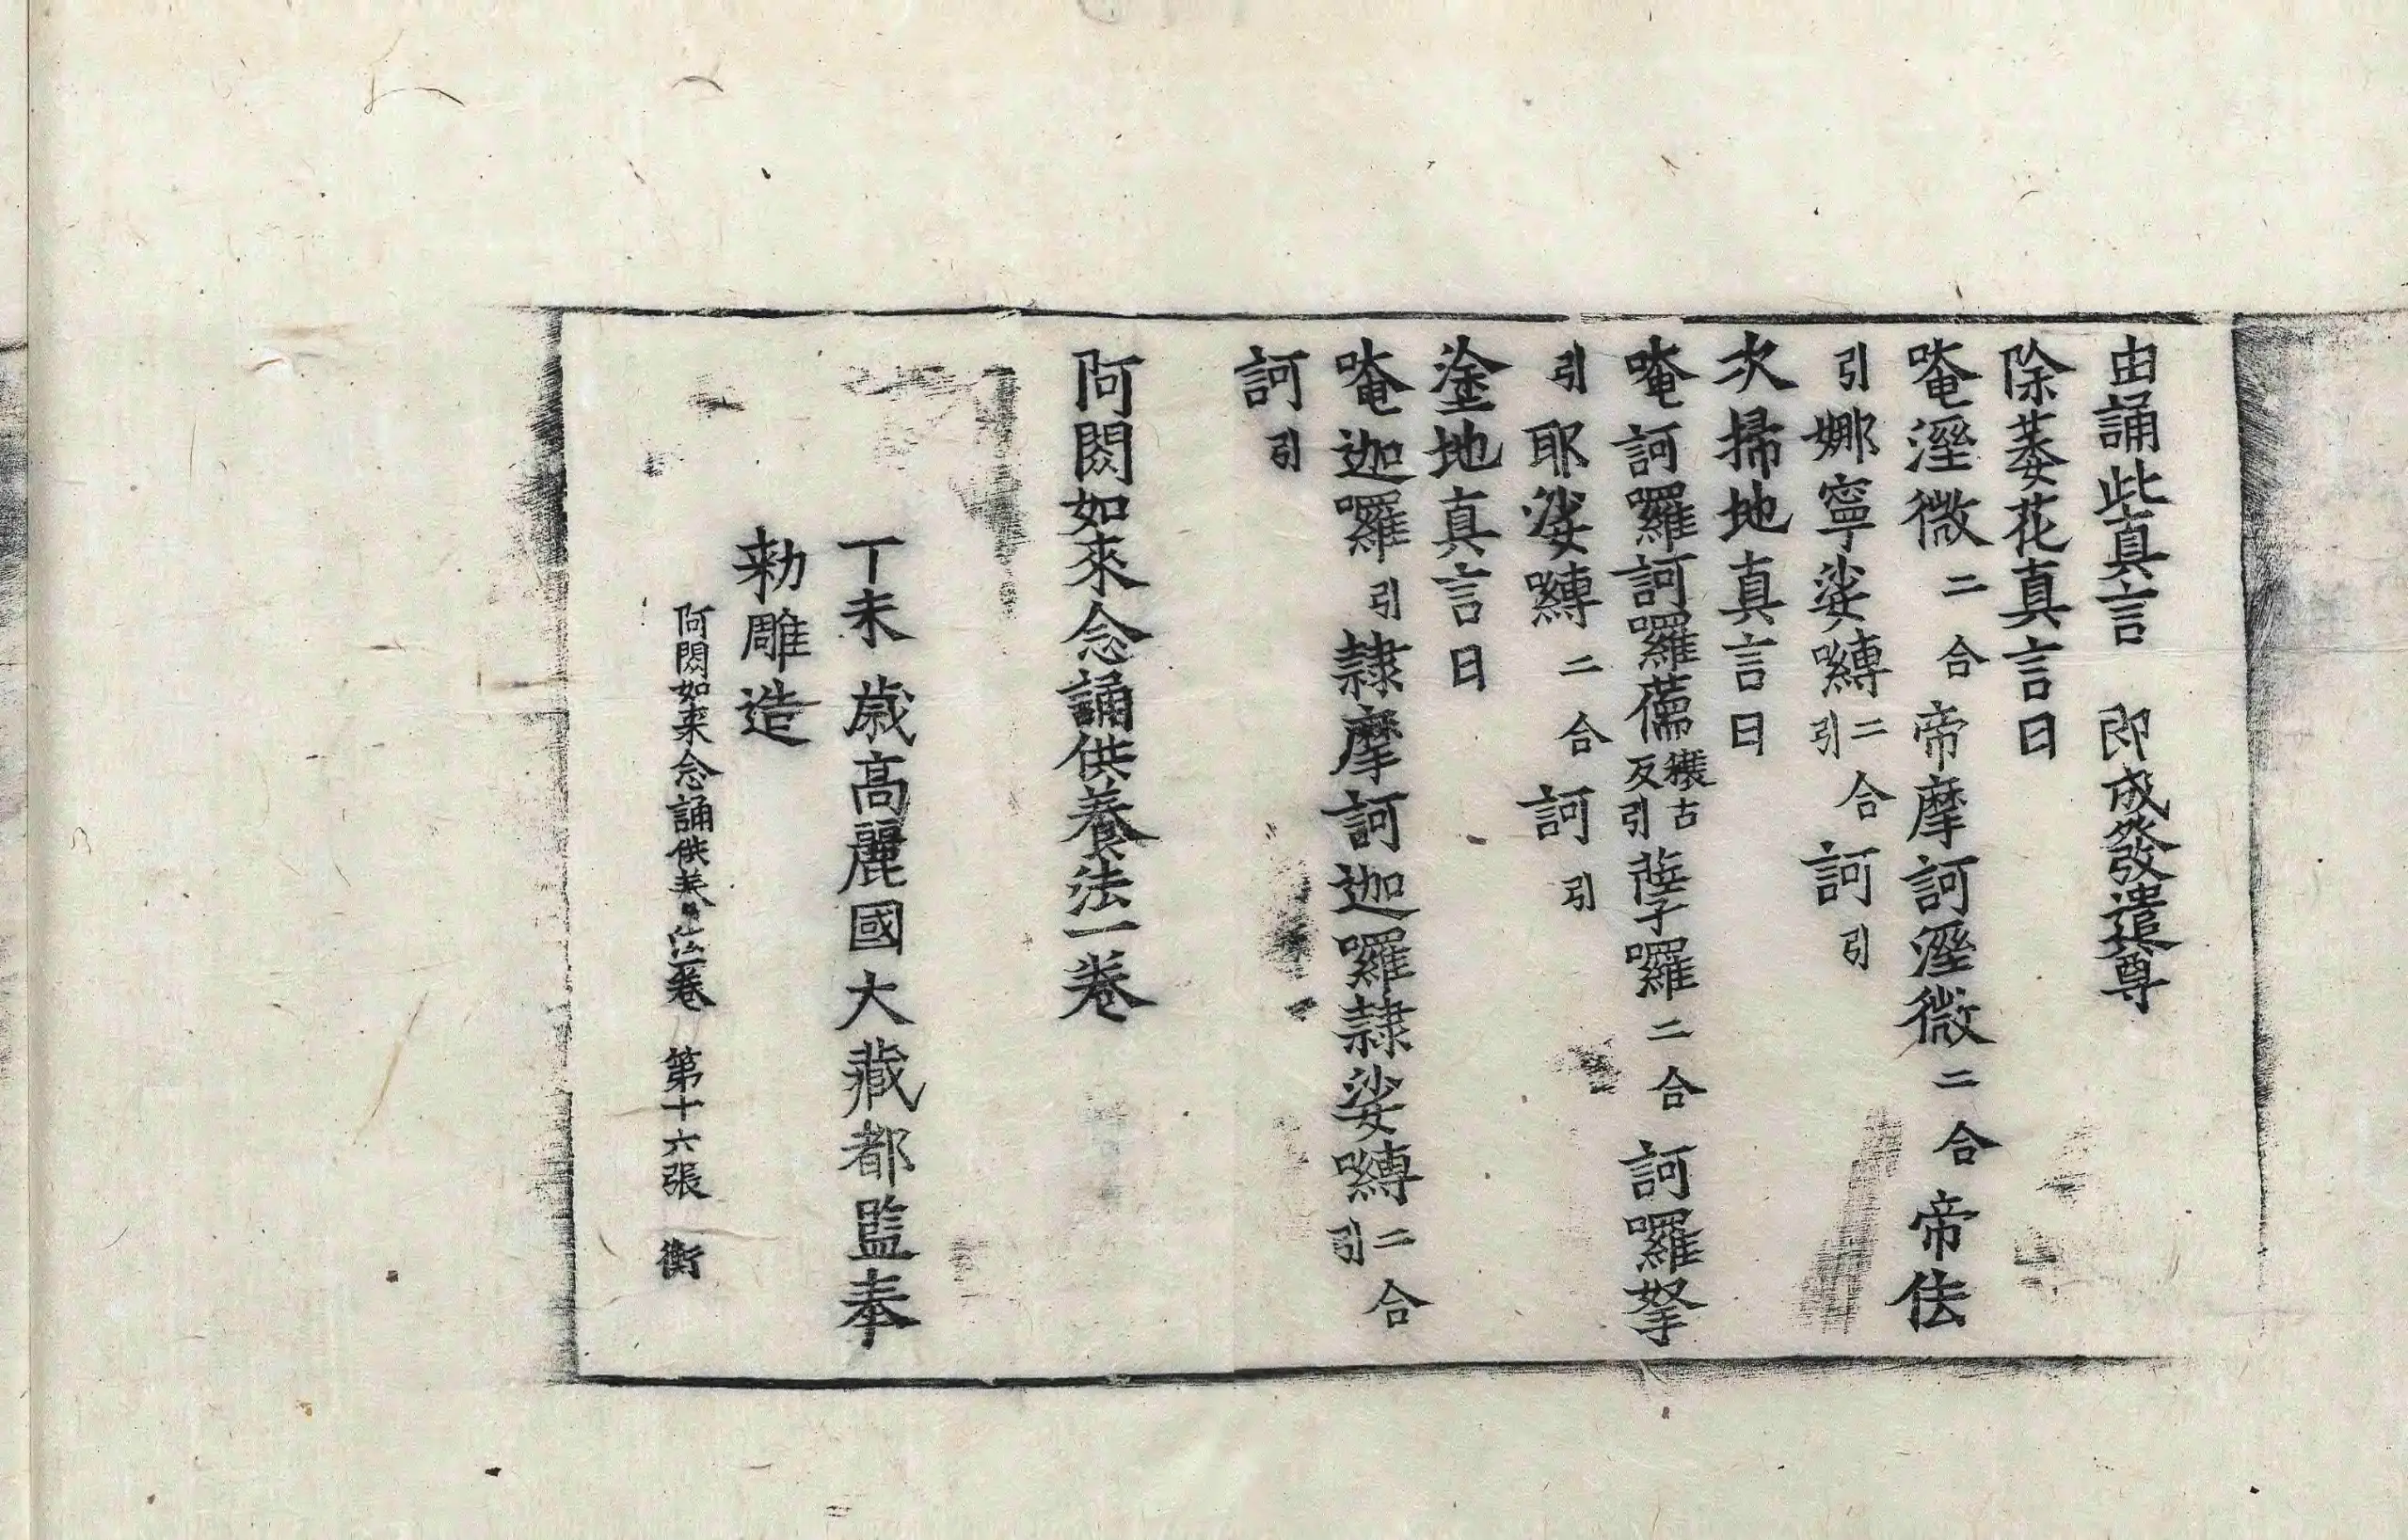 由誦此真言　即成發遣尊
除萎花真言曰
唵溼微二合帝摩訶溼微二合帝佉
引娜寧娑嚩二合引訶引
次掃地真言曰
唵訶囉訶囉儒攘古反引蕯囉二合訶囉拏
引耶娑嚩二合訶引
塗地真言曰
唵迦囉引隷摩訶迦囉隷娑嚩二合引
訶引
阿閦如來念誦供養法一卷
丁未歳高麗國大藏都監奉
勑雕造
阿閦如來念誦供养法一卷　第十六張　衡